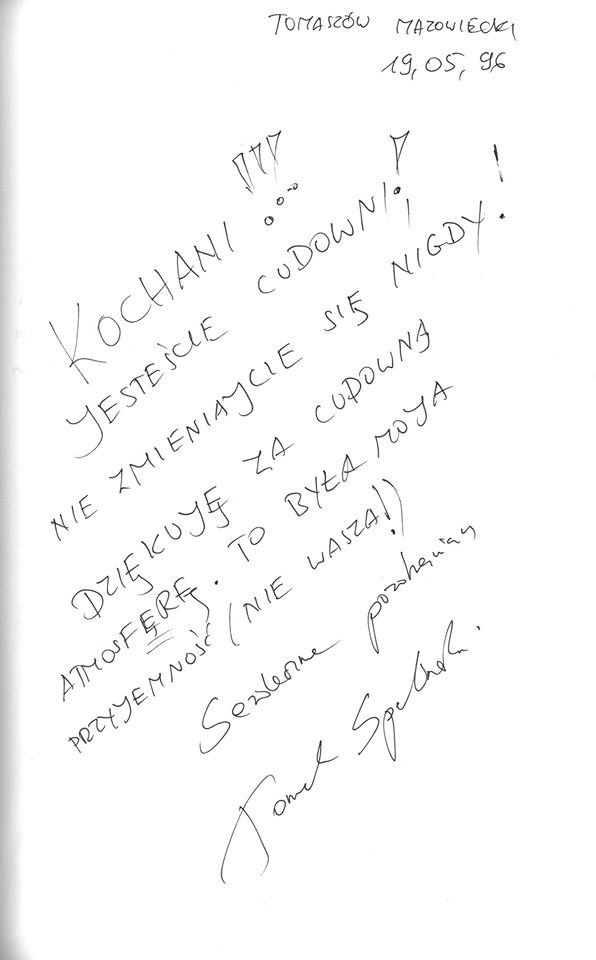 TOMASZÓW MAZOWIECKI
19,05,96
KOCHANI!!!
JESTEŚCIE CUDOWNI!
NIE ZMIENIAJCIE SIĘ NIGDY!
DZIĘKUJĘ ZA CUDOWNĄ
ATMOSFERĘ. TO BYŁA MOJA
PRZYJEMNOŚĆ (NIE WASZA!)
Serdecznie pozdrawiam
Tomek